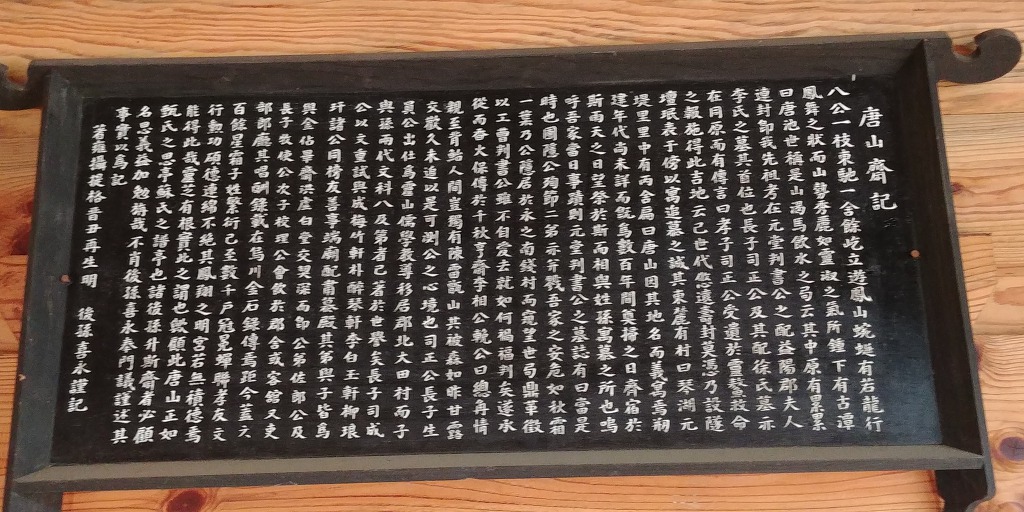 唐山齋記
八公一枝東馳一舍餘屹立遊鳳山蜿蜒有若龍行
鳳舞之狀而山勢秀麗如靈淑之氣所鍾下有古潭
曰唐池世稱是山渴馬飲水之句云其中原有累累
連封卽我先祖考在元堂判書公之配益陽郡夫人
李氏之墓其首位也長子司正公及其配徐氏墓亦
在同原而有傳言曰孝子司正公受遺於靈
之毅施得此吉地云已世代悠遠墓封莫憑乃設隧
壇珉表于傍以寓追慕之誠其東麓有村曰琴湖元
堤里里中有丙舍扁曰唐山因其地名而義寓焉
建年代尚未詳而旣爲數百年間奠掃之日齊宿於
斯雨天之日望祭於斯而相與姓孫寓慕之所也嗚
呼吾家當日事蹟則元堂判書公之墓誌有曰當是
時也圃隱公殉節二弟示弄戮吾家之安危如秋霜
一葉乃公隱居於永之南錢村而望若世句鼎革徵
以工曹判書公雖不自愛去就如何禍福判矣遂永
從而吞火保傳于千秋亨齋李相公輓公曰總角情
親至肯始人間豈獨有陳雷戩山共被森如昨甘露
交歡久未追以是可測公之心境也司正公長子生
員公出仕爲靈山儒學敎導移居郡北大田村而子
與孫兩代文科八及第者已著於世譽矣長子司成
公以文重試與成梅竹軒朴醉琴軒李白玉軒柳琅
玕諸公同榜友善事端廟配肅墓殿其弟與子皆爲
與金佔畢齋洪虛白堂交契深而卽公弟佐郎公及
長子敎使公次子校理公會飮於郡舍或客館又吏
部郎廳具唱酬錄載在烏川金石錄傳焉距今蓋六
百餘星霜子姓繁衍已至數千戶冠冕蟬聯孝友文
行勳功碩德連綿不絶其鳳翔之明宮若無積德焉
能得此哉靈芝有根貴此之謂也歟顧此唐山正如
甄氏之思亭蘇氏之譜亭也諸後孫升斯齋者必顧
名思義益加勉旃哉不肖後孫喜永參門議謹述其
事實以爲記
著雍攝提格菖月再生明 後孫喜永謹記